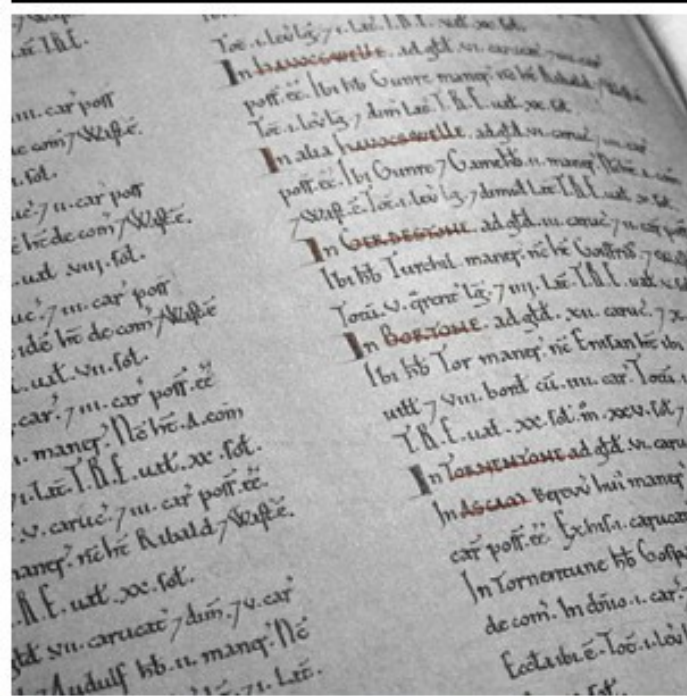 T.R.E.
.III. car poss
de com 7 Wast̄ ē.
.sol.
7 II. car poss
ħt de com 7 Wast̄ ē.
uał .VIII. sol.
7 III. car poss
ħt de com 7 Wast̄ ē
uał. VII. sol.
car. 7 III. car poss. eē
maner. Nc̄ ht̄. A. com
Lat̄. T.R.E. uał. XX. sol.
V. caruc. 7 III. car poss. eē.
maner. nc̄ ht̄ Ribald 7 Wast̄ ē.
R.E. uał. XX. sol.
VII. carucat 7 dim. 7 V. car
Audulf hb. II. maner. Nc̄
7 I. Lat̄.
Tot̄. I. leu lḡ. 7 I. Lat̄. T.R.E. uał. XX. sol.
In HAUOCSWELLE. ad gld̄. VI. caruc. 7 III. car
poss. eē. Ibi hb Gunre maner. nc̄ ht̄ Ribald. 7 Wast̄
Tot̄. I. leu lḡ. 7 dim lat̄. T.R.E. uał. XX. sol.
In alia HAUOCSWELLE. ad gld̄. VI. caruc. 7 III. car
poss. eē. Ibi Gunre 7 Gamel hb. II. maner.
7 Wast̄ ē. Tot̄. I. leu lḡ. 7 dimid Lat̄. T.R.E. uał. X. sol.
In GERDESTONE. ad gld̄. III. caruc. 7 II. car poss
Ibi hb Turchil maner. nc̄ ht̄ Gosfrid. 7
Totū. V. qrent̄ lḡ. 7 IIII. Lat̄. T.R.E. uał. V. sol
In BORTONE. ad gld̄. XII. caruc. 7 X.
Ibi hb Tor maner. nc̄ Ernsan ht̄ ibi
uiłł 7 VIII. bord cū. IIII. car. Totū.
T.R.E. uał. XX. sol. m̊. XXV. sol. 7
In TORNENTONE ad gld̄. VI. caru
In ASCAM Bereuu hui maner
car poss. eē Exhis. I. carucat
In Tornentune hb Gospa
de com. In dn̄io. I. car. 7
Eccła ibi ē. Tot̄. I. leu l